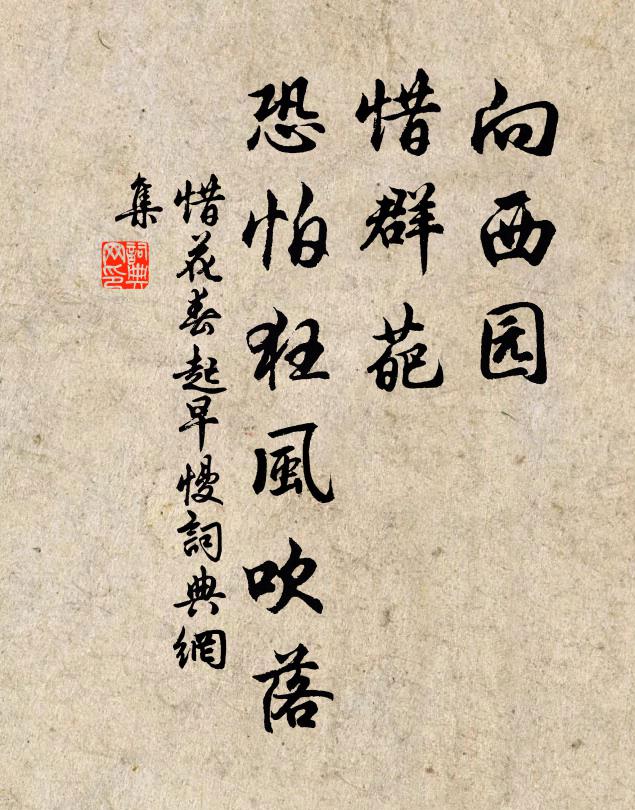 向西园
惜群葩
恐怕狂風吹落
惜花春起早慢詞典網
集
詞典
网印